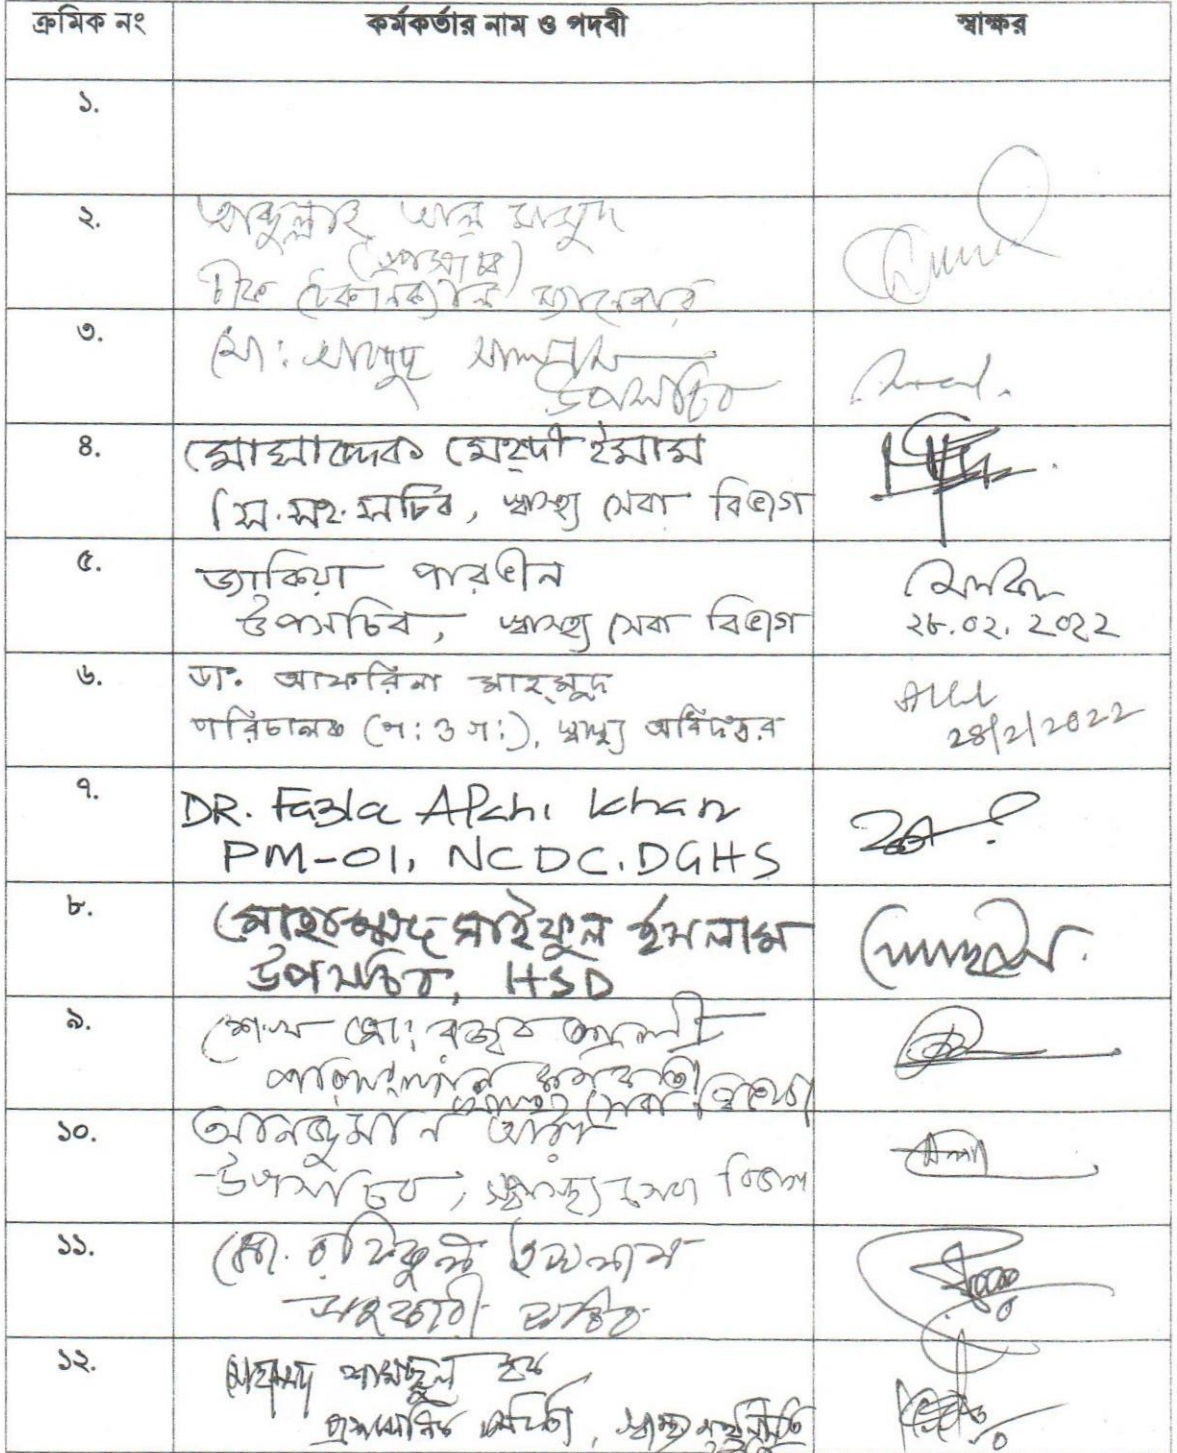 ক্রমিক নং কর্মকর্তার নাম ও পদবী স্বাক্ষর
১.
২. আব্দুল্লাহ আল মামুদ
(উপসচিব)
চীফ টেকনিক্যাল ম্যানেজার
৩. মো: আব্দুছ সালাম
উপসচিব
৪. মোসাদ্দেক মেহ্দী ইমাম
সি. সহ. সচিব, স্বাস্থ্য সেবা বিভাগ
৫. জাকিয়া পারভীন
উপসচিব, স্বাস্থ্য সেবা বিভাগ ২৮.০২.২০২২
৬. ডা. আফরিনা মাহমুদ
পরিচালক (প: ও গ:), স্বাস্থ্য অধিদপ্তর 28/2/2022
৭. DR. Fazla Khan
PM-01, NCDC, DGHS
৮. মোহাম্মদ সাইফুল ইসলাম
উপসচিব, HSD
৯. শেখ মো: রজব আলী
পরিসংখ্যান কর্মকর্তা
স্বাস্থ্য সেবা বিভাগ
১০. আনজুমান আরা
উপসচিব, স্বাস্থ্য সেবা বিভাগ
১১. মো. রফিকুল ইসলাম
সহকারী সচিব
১২. মোহাম্মদ শামছুল হক
প্রশাসনিক কর্মকর্তা, স্বাস্থ্য